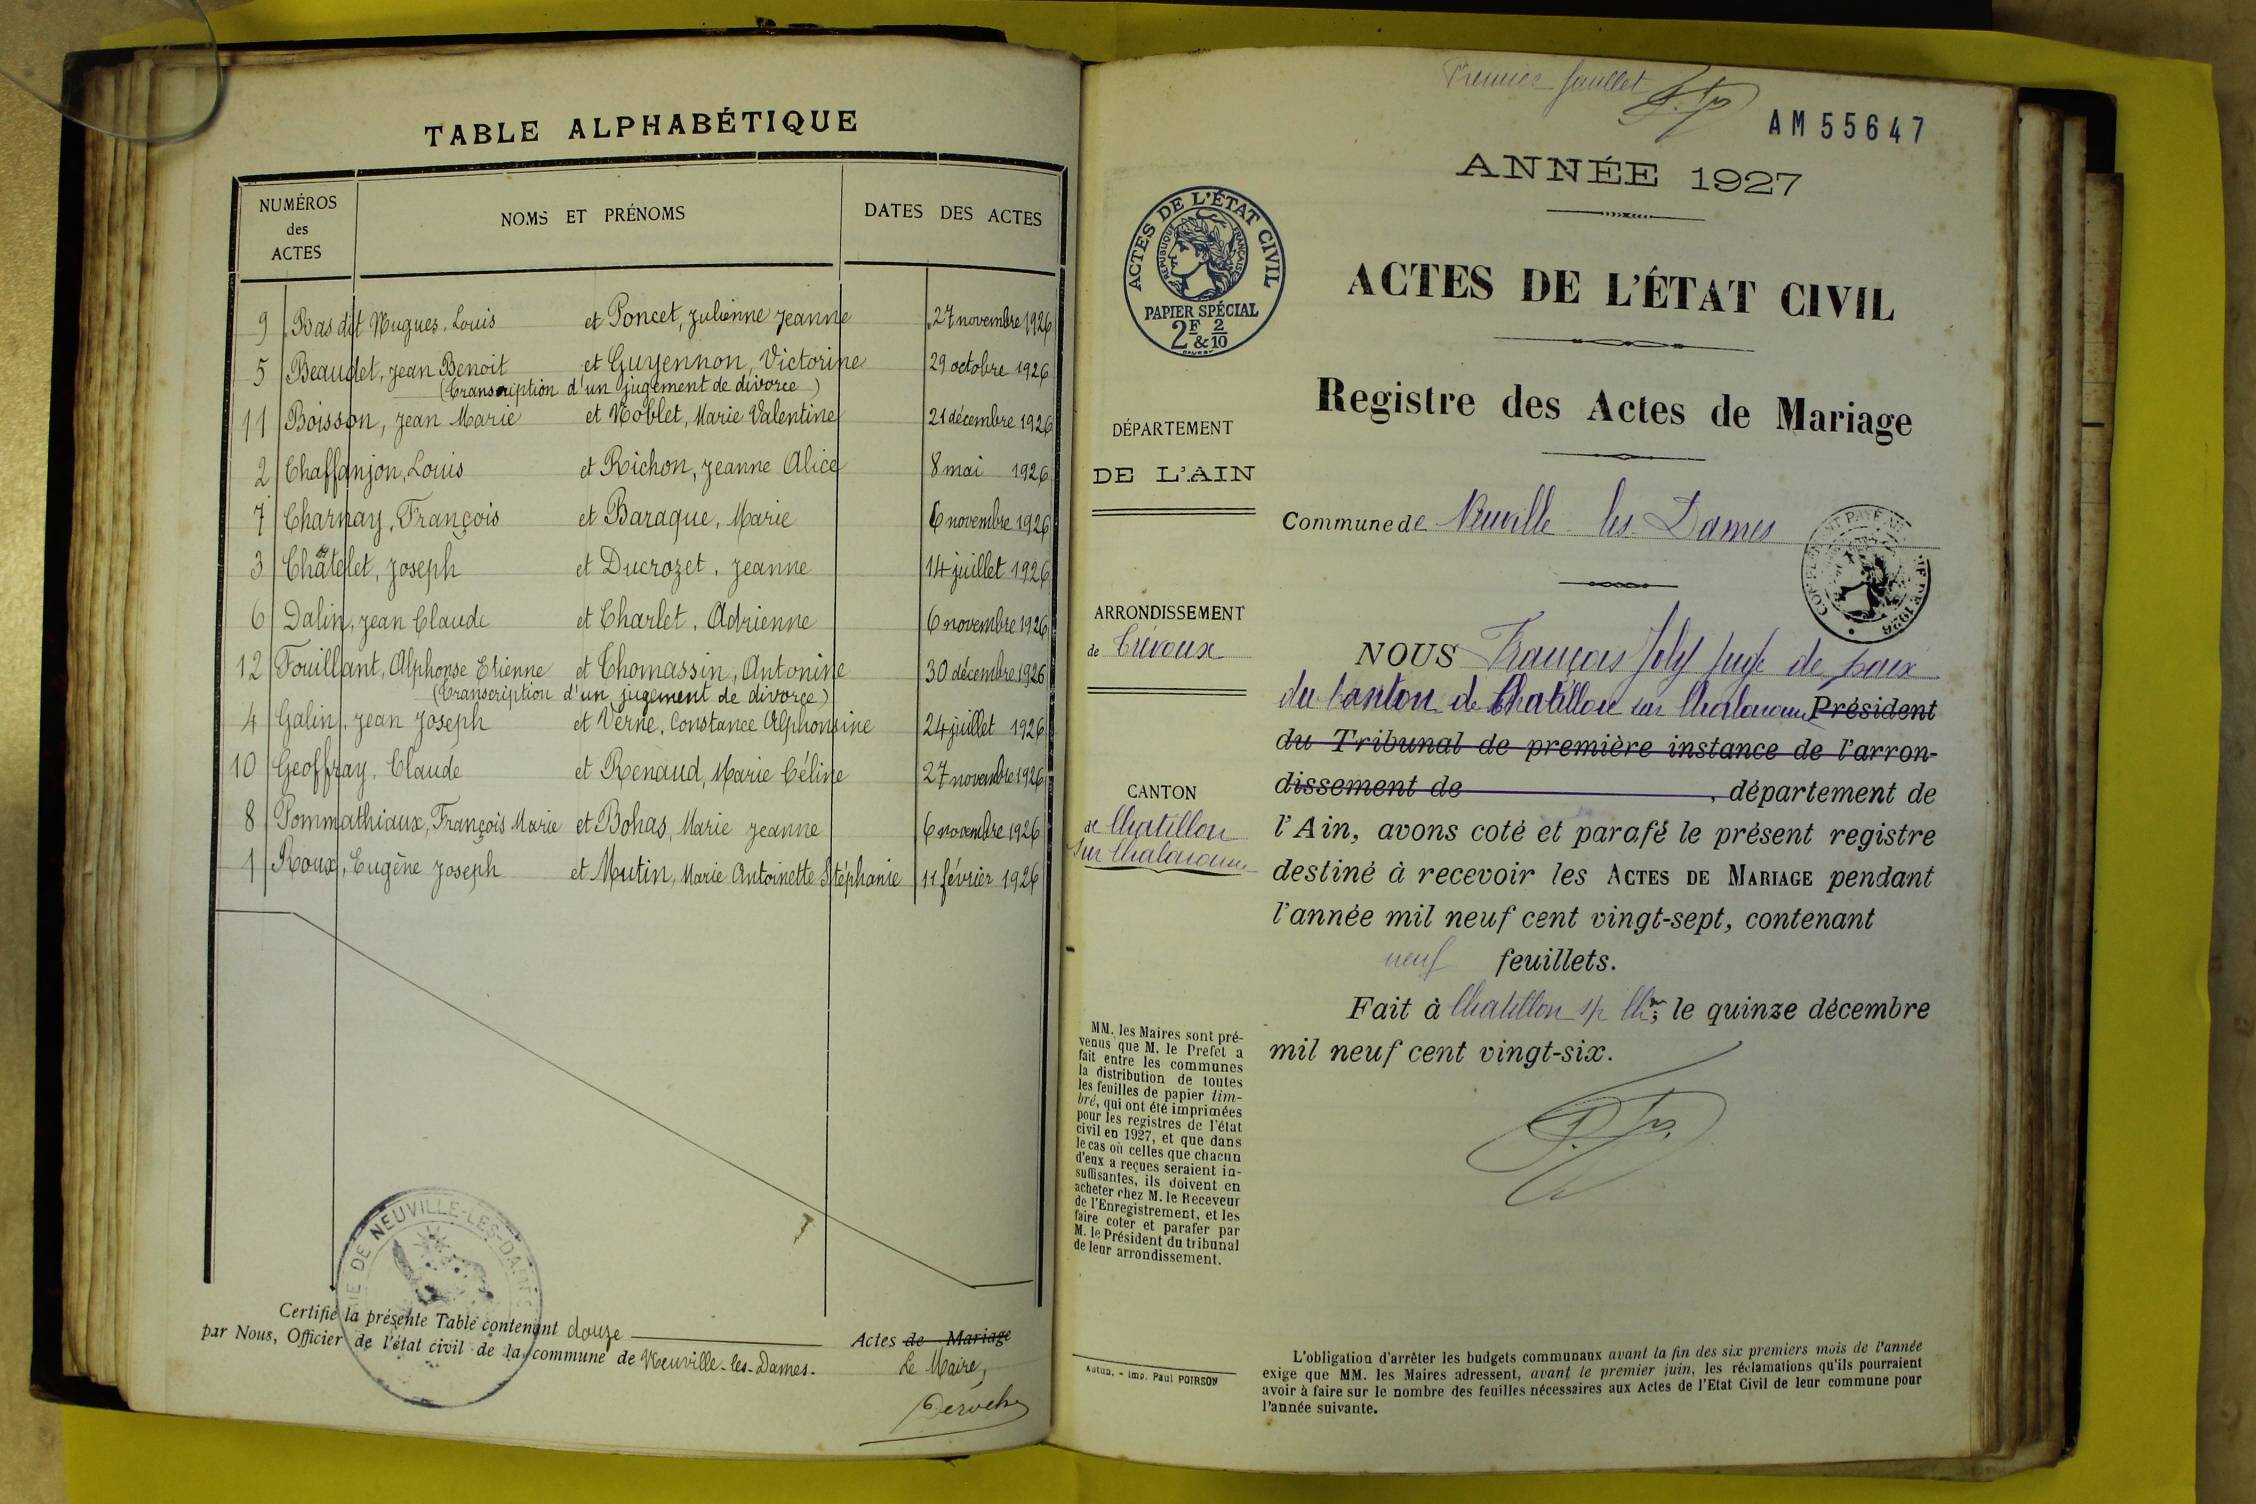 TABLE ALPHABÉTIQUE
NUMÉROS
des
ACTES
NOMS ET PRÉNOMS
DATES DES ACTES
9 Bas dit Mugues, Louis et Poncet, Julienne Jeanne 27 novembre 1926
5 Beaudet, Jean Benoit et Guyennon, Victorine 29 octobre 1926
(Transcription d'un jugement de divorce)
11 Boisson, Jean Marie et Noblet, Marie Valentine 21 décembre 1926
2 Chaffanjon, Louis et Richon, Jeanne Alice 8 mai 1926
7 Charnay, François et Baraque, Marie 6 novembre 1926
3 Châtelet, Joseph et Ducrozet, Jeanne 14 juillet 1926
6 Dalin, Jean Claude et Charlet, Adrienne 6 novembre 1926
12 Fouillant, Alphonse Etienne et Thomassin, Antonine 30 décembre 1926
(Transcription d'un jugement de divorce)
4 Galin, Jean Joseph et Verne, Constance Alphonsine 24 juillet 1926
10 Geoffray, Claude et Renaud, Marie Céline 27 novembre 1926
8 Pommathiaux, François Marie et Bohas, Marie Jeanne 6 novembre 1926
1 Roux, Eugène Joseph et Mutin, Marie Antoinette Stéphanie 11 février 1926
Certifié la présente Table contenant douze Actes de Mariage
par Nous, Officier de l'état civil de la commune de Neuville-les-Dames.
Le Maire,
DE NEUVILLE-LES-DAMES
Premier feuillet
AM 55647
ANNÉE 1927
ACTES DE L'ÉTAT CIVIL
RÉPUBLIQUE FRANÇAISE
PAPIER SPÉCIAL
2F & 2/10
ACTES DE L'ÉTAT CIVIL
Registre des Actes de Mariage
DÉPARTEMENT
DE L'AIN
Commune de Neuville les Dames
ARRONDISSEMENT
de Trévoux
CANTON
de Chatillon
sur Chalaronne
NOUS François Joly Juge de paix
du Canton de Chatillon sur Chalaronne Président
du Tribunal de première instance de l'arron-
dissement de , département de
l'Ain, avons coté et parafé le présent registre
destiné à recevoir les ACTES DE MARIAGE pendant
l'année mil neuf cent vingt-sept, contenant
neuf feuillets.
Fait à Chatillon s/ Chne, le quinze décembre
mil neuf cent vingt-six.
MM. les Maires sont pré-
venus que M. le Préfet a
fait entre les communes
la distribution de toutes
les feuilles de papier tim-
bré, qui ont été imprimées
pour les registres de l'état
civil en 1927, et que dans
le cas où celles que chacun
d'eux a reçues seraient in-
suffisantes, ils doivent en
acheter chez M. le Receveur
de l'Enregistrement, et les
faire coter et parafer par
M. le Président du tribunal
de leur arrondissement.
Autun. - Imp. Paul POIRSON
L'obligation d'arrêter les budgets communaux avant la fin des six premiers mois de l'année
exige que MM. les Maires adressent, avant le premier juin, les réclamations qu'ils pourraient
avoir à faire sur le nombre des feuilles nécessaires aux Actes de l'Etat Civil de leur commune pour
l'année suivante.